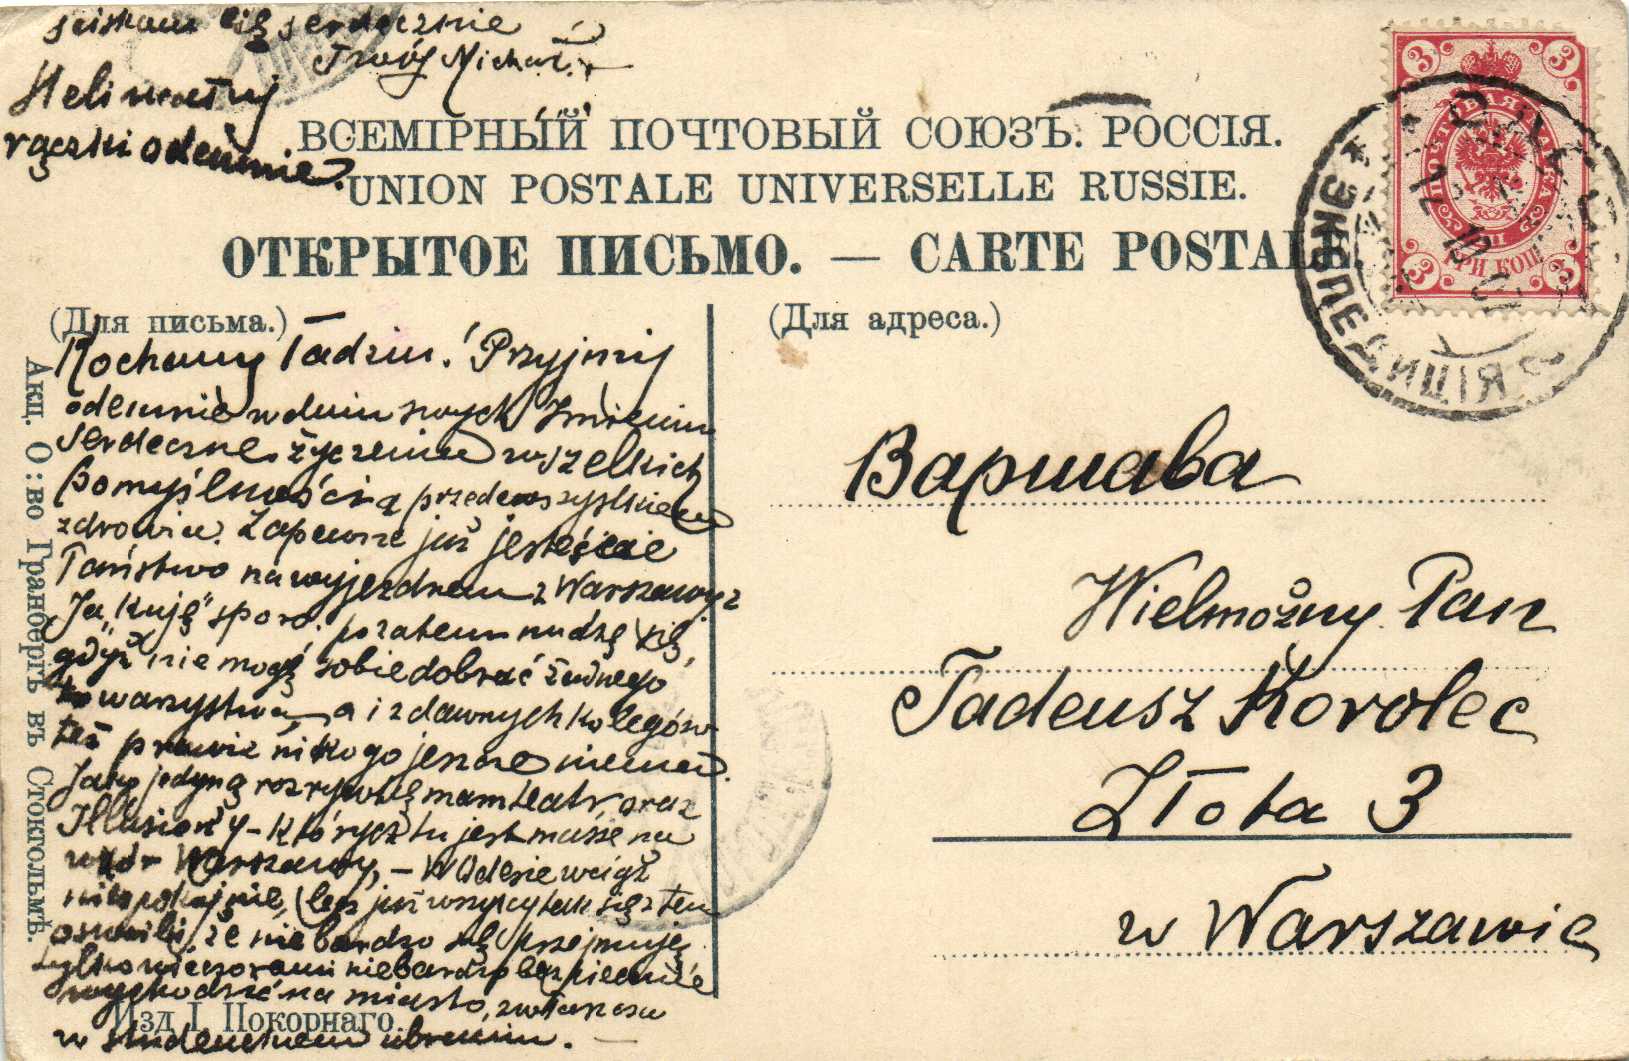 ściskam Cię serdecznie
Twój Michał.
Heli ucałuj
rączki odemnie.
ВСЕМІРНЫЙ ПОЧТОВЫЙ СОЮЗЪ. РОССІЯ.
UNION POSTALE UNIVERSELLE RUSSIE.
ОТКРЫТОЕ ПИСЬМО. — CARTE POSTALE.
(Для письма.)
Kochany Tadziu! Przyjmij
odemnie w dniu swych Imienin
serdeczne życzenia wszelkich
pomyślności a przedewszystkiem
zdrowia. Zapewne już jesteście
Państwo na wyjezdnem z Warszawy.
Ja „kuję" sporo, pozatem nudzę się,
gdyż nie mogę sobie dobrać żadnego
towarzystwa, a i z dawnych kolegów
też prawie nikogo jeszcze niema.
Jako jedyną rozrywkę mam teatr oraz
Illusiony – których tu jest masę na
wzór Warszawy, – W Odesie wciąż
niespokojnie, lecz już wszyscy tak się z tem
oswoili, że nie bardzo się przejmują
tylko wieczorami niebardzo bezpiecznie
wychodzić na miasto, zwłaszcza
w studenckiem ubraniu. –
Акц. О:во Гранбергъ въ Стокгольмѣ.
Изд І Покорнаго.
(Для адреса.)
Варшава
Wielmożny Pan
Tadeusz Korolec
Złota 3
w Warszawie
3 3
ПОЧТОВАЯ МАРКА
ТРИ КОП.
3 3
ОДЕССА
10
ЭКСПЕДИЦІЯ